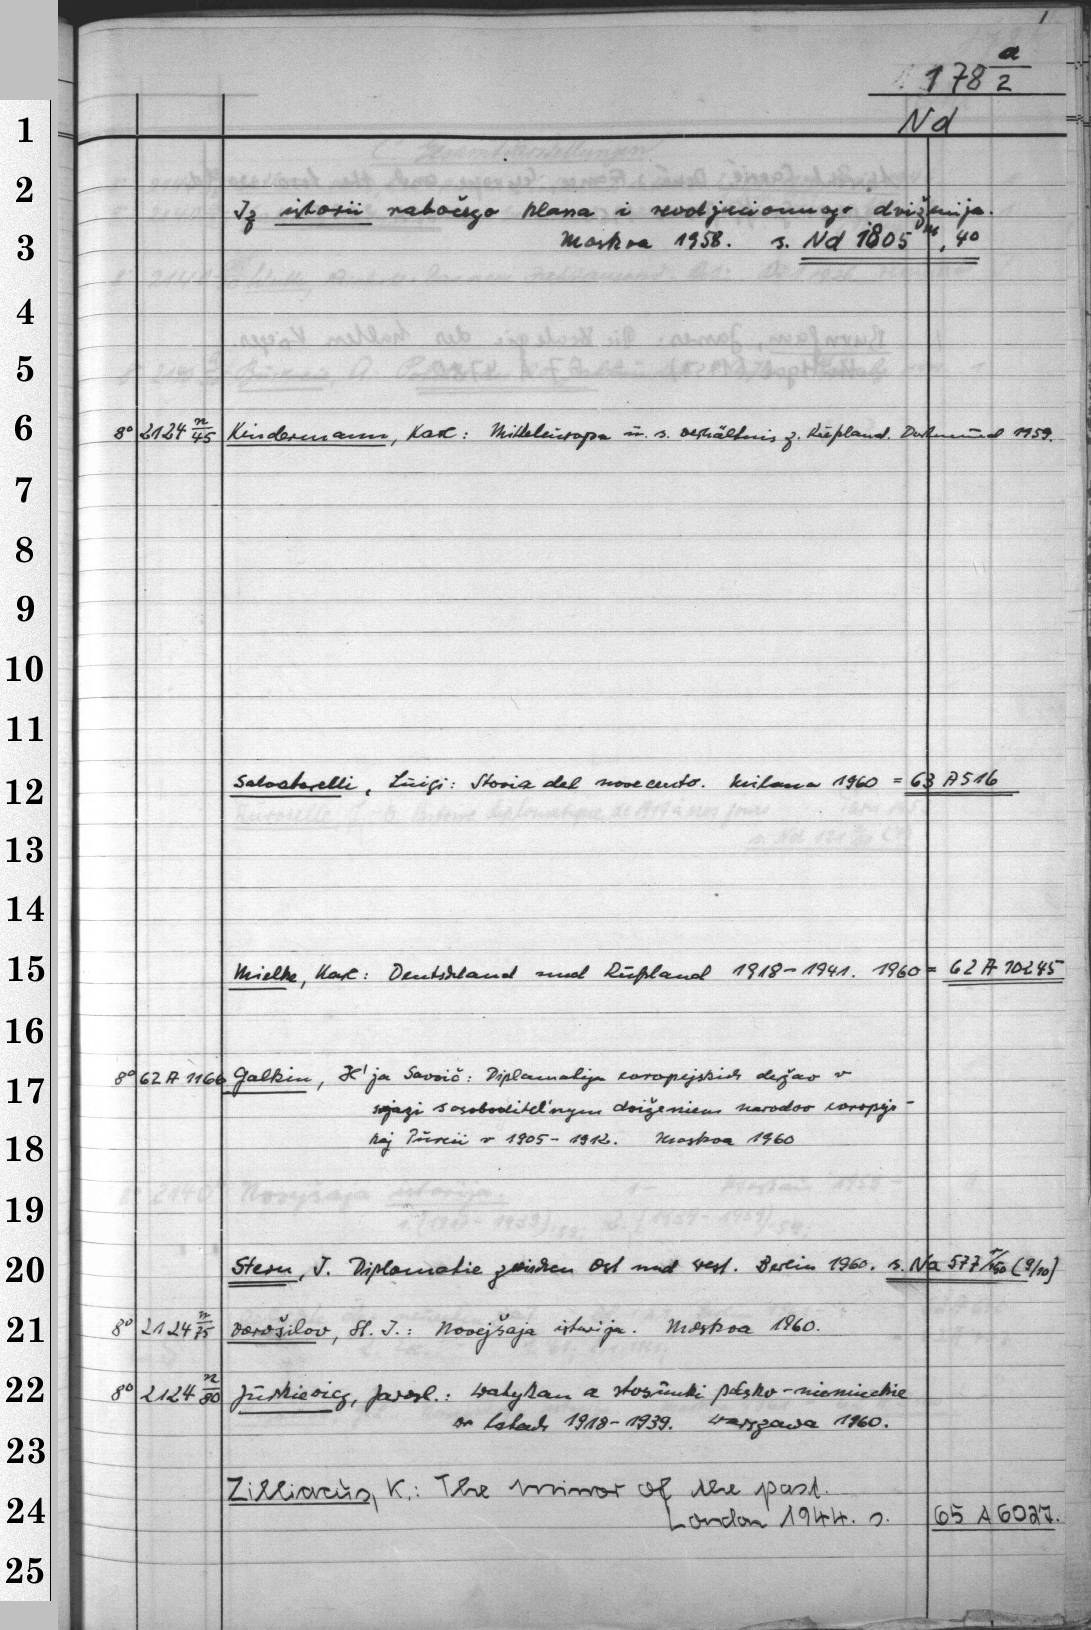 1
178 a/2
Nd
1
2
Iz istorii rabočego klassa i revoljucionnogo dviženija.
3
Moskva 1958. s. Nd 1805 m, 40
4
5
6
8° 2124 n/45 Kindermann, Karl: Mitteleuropa u. s. Verhältnis z. Rußland. Dortmund 1959.
7
8
9
10
11
12
Salvatorelli, Luigi: Storia del novecento. Milano 1960 = 63 A 516
13
14
15
Mielke, Karl: Deutschland und Rußland 1918-1941. 1960 = 62 A 10245
16
17
8° 62 A 1166 Galkin, Il'ja Savvič: Diplomatija evropejskich deržav v
svjazi s osvoboditel'nym dviženiem narodov evropejs-
18
koj Turcii v 1905-1912. Moskva 1960
19
20
Stern, J. Diplomatie zwischen Ost und West. Berlin 1960. s. Na 577 n/150 (9/10)
21
8° 2124 n/75 Vorošilov, I.: Novejšaja istorija. Moskva 1960.
22
8° 2124 n/80 Jurkiewicz, Jarosl.: Watykan a stosunki polsko-niemieckie
w latach 1918-1939. Warszawa 1960.
23
24
Zilliacus, K.: The mirror of the past.
London 1944. s. 65 A 6027.
25